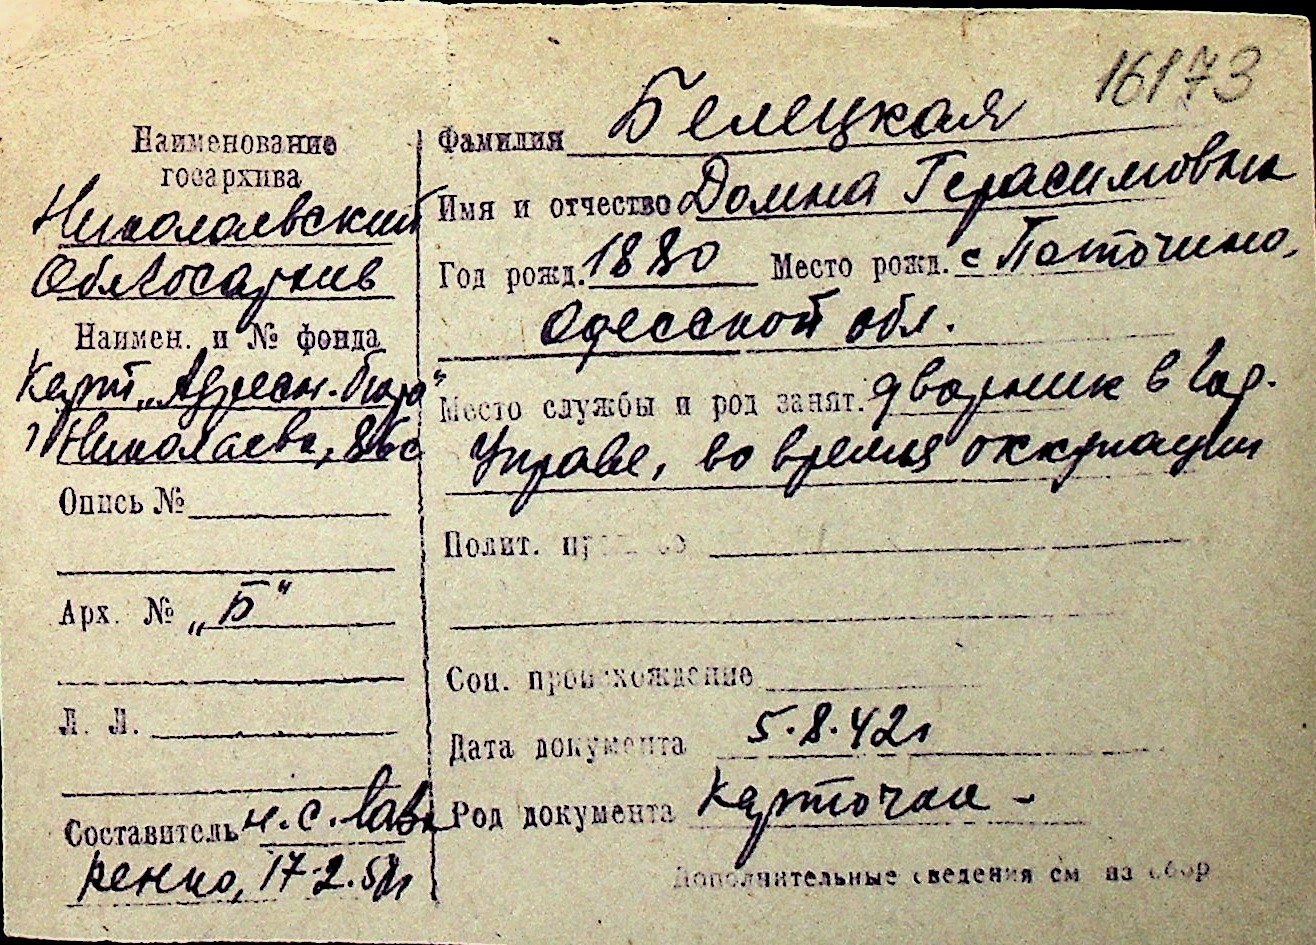 16173
Наименование
госархива
Николаевский
Облгосархив
Наимен. и № фонда
Карт. „Адресн. бюро“
г Николаева,
Опись №
Арх. № „Б“
Л. Л.
Составитель н. с. Лав
ренко, 17.2.52г
Фамилия Белецкая
Имя и отчество Домна Герасимовна
Год рожд. 1880 Место рожд. с
Одесской обл.
Место службы и род занят. дворник в Гор.
Управе, во время оккупации
Полит.
Соц. происхождение
Дата документа 5.8.42г
Род документа карточка -
Дополнительные сведения см на обор